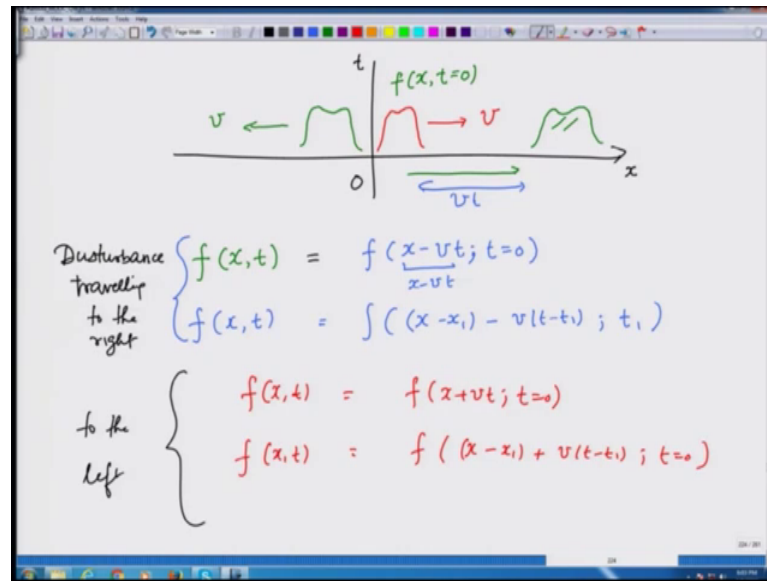 File Edit View Insert Actions Tools Help
Page Width
t
f(x, t=0)
v ← → v
x
0
vt
Dusturbance
travellig
to the
right
f(x,t) = f(x-vt; t=0)
x-vt
f(x,t) = f((x-x₁) - v(t-t₁); t₁)
to the
left
f(x,t) = f(x+vt; t=0)
f(x,t) = f((x-x₁) + v(t-t₁); t=0)